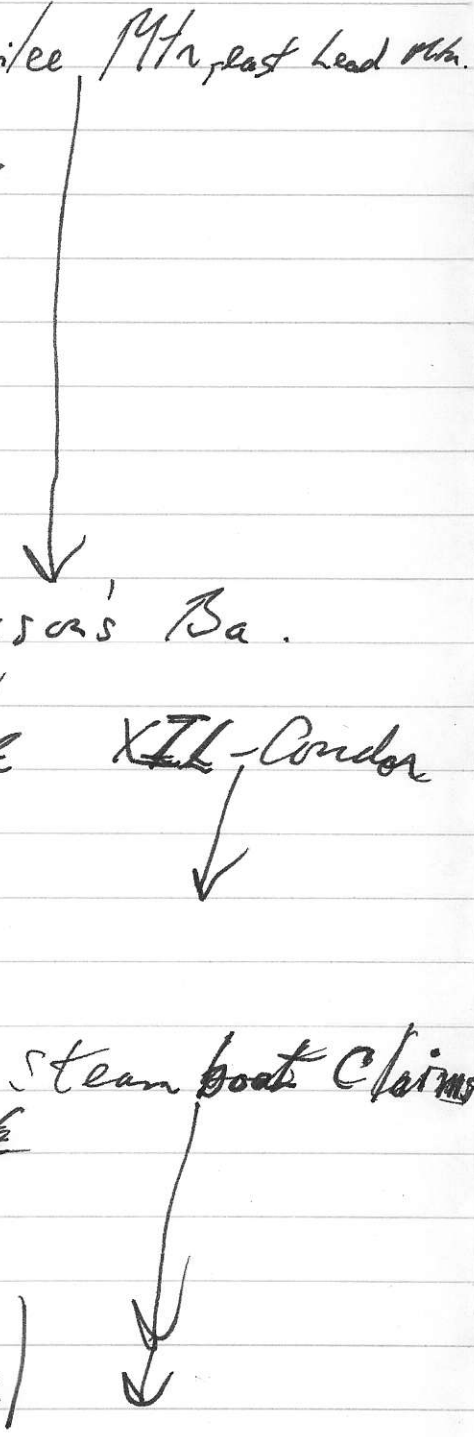 ilee Mtn, east Lead Mtn.
son's Ba.
XIL-Condor
Steam boat Claims